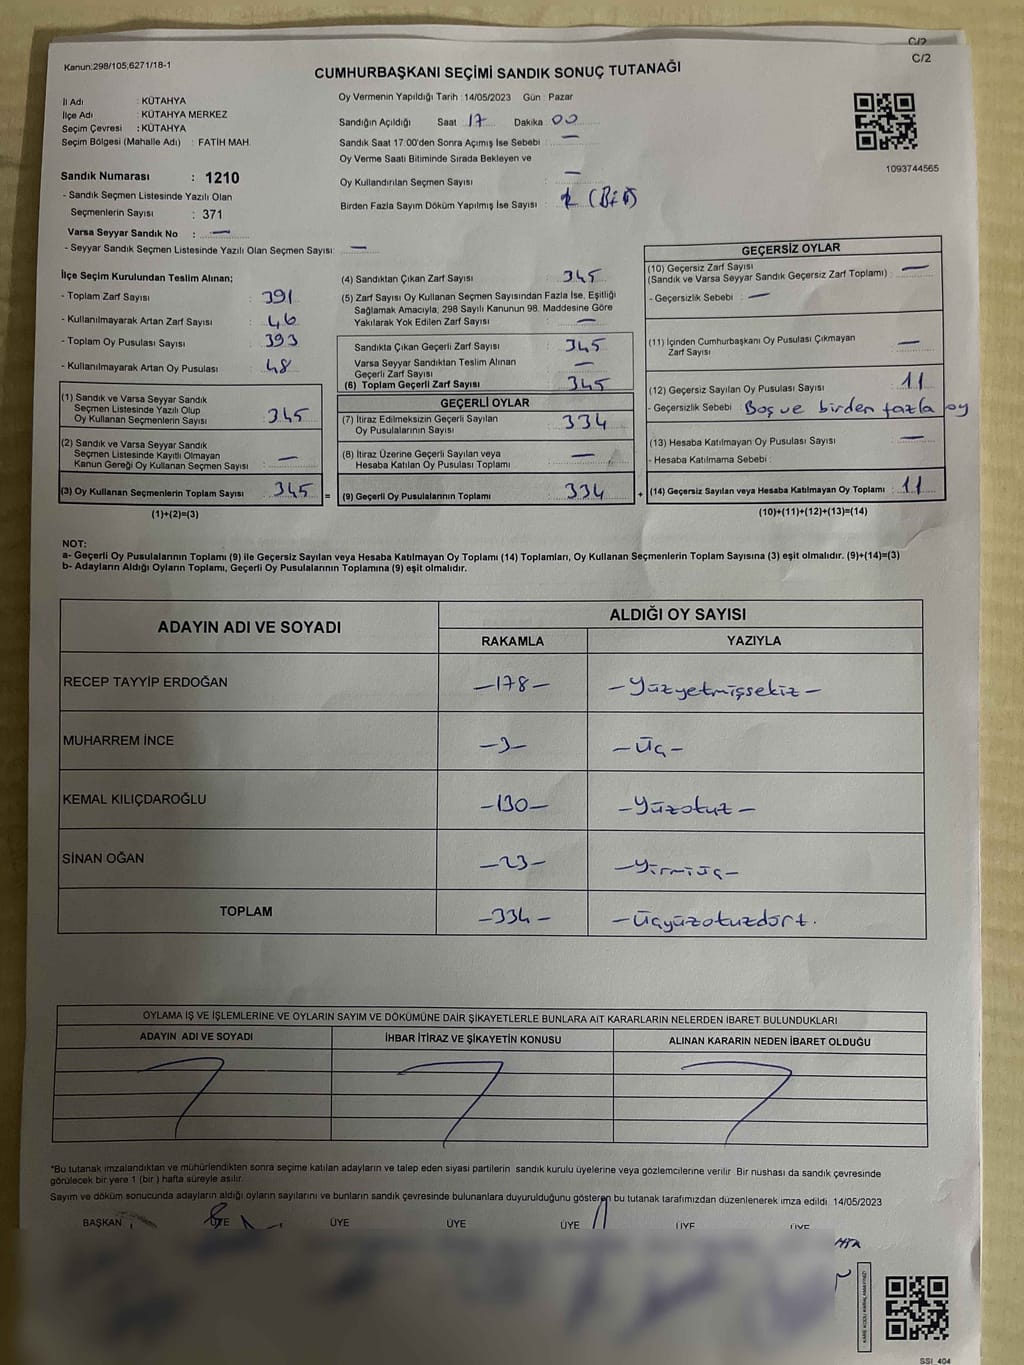 C/2
C/2
Kanun:298/105,6271/18-1
CUMHURBAŞKANI SEÇİMİ SANDIK SONUÇ TUTANAĞI
İl Adı : KÜTAHYA
İlçe Adı : KÜTAHYA MERKEZ
Seçim Çevresi : KÜTAHYA
Seçim Bölgesi (Mahalle Adı) : FATİH MAH.
Oy Vermenin Yapıldığı Tarih :14/05/2023 Gün : Pazar
Sandığın Açıldığı Saat 17 Dakika 00
Sandık Saat 17:00'den Sonra Açımış İse Sebebi : —
Oy Verme Saati Bitiminde Sırada Bekleyen ve
Oy Kullandırılan Seçmen Sayısı : —
Birden Fazla Sayım Döküm Yapılmış İse Sayısı : 1 (Bir)
1093744565
Sandık Numarası : 1210
- Sandık Seçmen Listesinde Yazılı Olan
Seçmenlerin Sayısı : 371
Varsa Seyyar Sandık No : —
- Seyyar Sandık Seçmen Listesinde Yazılı Olan Seçmen Sayısı: —
İlçe Seçim Kurulundan Teslim Alınan;
- Toplam Zarf Sayısı : 391
- Kullanılmayarak Artan Zarf Sayısı : 46
- Toplam Oy Pusulası Sayısı : 393
- Kullanılmayarak Artan Oy Pusulası : 48
(1) Sandık ve Varsa Seyyar Sandık
Seçmen Listesinde Yazılı Olup
Oy Kullanan Seçmenlerin Sayısı : 345
(2) Sandık ve Varsa Seyyar Sandık
Seçmen Listesinde Kayıtlı Olmayan
Kanun Gereği Oy Kullanan Seçmen Sayısı : —
(3) Oy Kullanan Seçmenlerin Toplam Sayısı : 345
(1)+(2)=(3)
(4) Sandıktan Çıkan Zarf Sayısı : 345
(5) Zarf Sayısı Oy Kullanan Seçmen Sayısından Fazla İse, Eşitliği
Sağlamak Amacıyla, 298 Sayılı Kanunun 98. Maddesine Göre
Yakılarak Yok Edilen Zarf Sayısı : —
Sandıkta Çıkan Geçerli Zarf Sayısı : 345
Varsa Seyyar Sandıktan Teslim Alınan
Geçerli Zarf Sayısı : —
(6) Toplam Geçerli Zarf Sayısı : 345
GEÇERLİ OYLAR
(7) İtiraz Edilmeksizin Geçerli Sayılan
Oy Pusulalarının Sayısı : 334
(8) İtiraz Üzerine Geçerli Sayılan veya
Hesaba Katılan Oy Pusulası Toplamı : —
= (9) Geçerli Oy Pusulalarının Toplamı : 334
GEÇERSİZ OYLAR
(10) Geçersiz Zarf Sayısı
(Sandık ve Varsa Seyyar Sandık Geçersiz Zarf Toplamı) : —
- Geçersizlik Sebebi : —
(11) İçinden Cumhurbaşkanı Oy Pusulası Çıkmayan
Zarf Sayısı : —
(12) Geçersiz Sayılan Oy Pusulası Sayısı : 11
- Geçersizlik Sebebi : Boş ve birden fazla oy
(13) Hesaba Katılmayan Oy Pusulası Sayısı : —
- Hesaba Katılmama Sebebi :
+ (14) Geçersiz Sayılan veya Hesaba Katılmayan Oy Toplamı : 11
(10)+(11)+(12)+(13)=(14)
NOT:
a- Geçerli Oy Pusulalarının Toplamı (9) ile Geçersiz Sayılan veya Hesaba Katılmayan Oy Toplamı (14) Toplamları, Oy Kullanan Seçmenlerin Toplam Sayısına (3) eşit olmalıdır. (9)+(14)=(3)
b- Adayların Aldığı Oyların Toplamı, Geçerli Oy Pusulalarının Toplamına (9) eşit olmalıdır.
ADAYIN ADI VE SOYADI
ALDIĞI OY SAYISI
RAKAMLA YAZIYLA
RECEP TAYYİP ERDOĞAN —178— —Yüzyetmişsekiz—
MUHARREM İNCE —3— —Üç—
KEMAL KILIÇDAROĞLU —130— —Yüzotuz—
SİNAN OĞAN —23— —Yirmiüç—
TOPLAM —334— —Üçyüzotuzdört.
OYLAMA İŞ VE İŞLEMLERİNE VE OYLARIN SAYIM VE DÖKÜMÜNE DAİR ŞİKAYETLERLE BUNLARA AİT KARARLARIN NELERDEN İBARET BULUNDUKLARI
ADAYIN ADI VE SOYADI İHBAR İTİRAZ VE ŞİKAYETİN KONUSU ALINAN KARARIN NEDEN İBARET OLDUĞU
*Bu tutanak imzalandıktan ve mühürlendikten sonra seçime katılan adayların ve talep eden siyasi partilerin sandık kurulu üyelerine veya gözlemcilerine verilir Bir nushası da sandık çevresinde
görülecek bir yere 1 (bir) hafta süreyle asılır.
Sayım ve döküm sonucunda adayların aldığı oyların sayılarını ve bunların sandık çevresinde bulunanlara duyurulduğunu gösteren bu tutanak tarafımızdan düzenlenerek imza edildi 14/05/2023
BAŞKAN ÜYE ÜYE ÜYE ÜYE ÜYE ÜYE
SSI_404